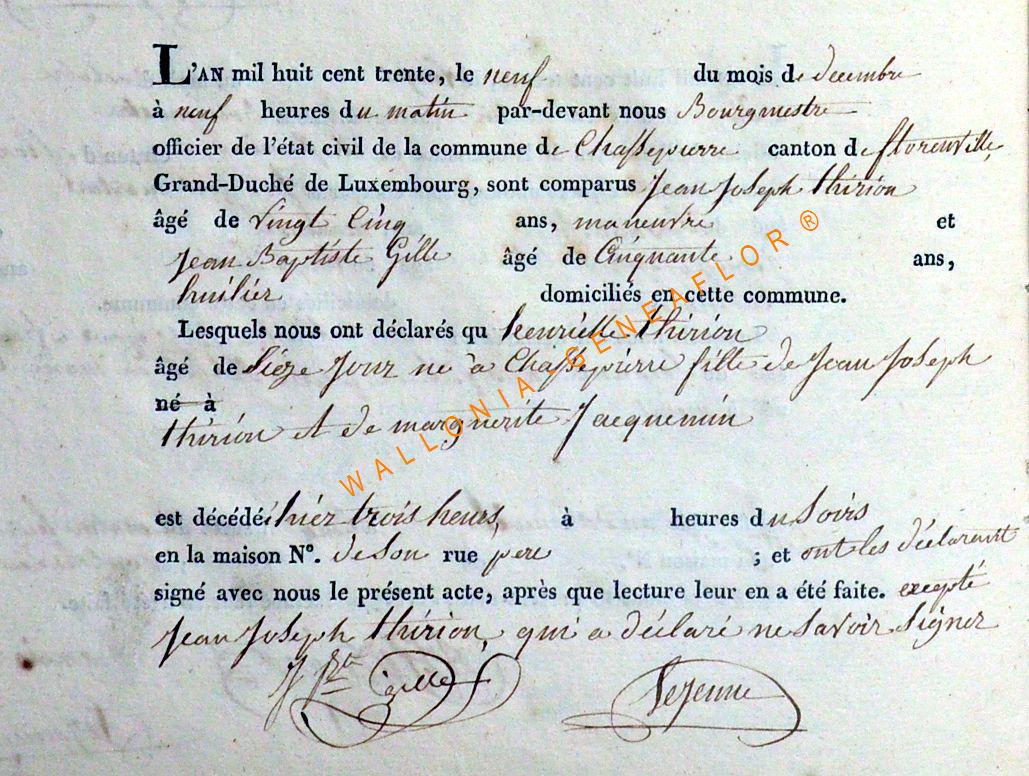 L'AN mil huit cent trente, le neuf du mois de decembre
à neuf heures du matin par-devant nous Bourgmestre
officier de l'état civil de la commune de Chassepierre canton de florenville,
Grand-Duché de Luxembourg, sont comparus Jean Joseph thirion
âgé de vingt Cinq ans, maneuvre et
Jean Baptiste Gille âgé de Cinquante ans,
huilier domiciliés en cette commune.
Lesquels nous ont déclarés qu henriette thirion
âgé de Sièze Jour né à Chassepierre fille de Jean Joseph
né à
thirion et de marguerite Jacquemin
est décédé hièr trois heures à heures du Soirs
en la maison N°. de Son rue pere ; et ont les déclarant
signé avec nous le présent acte, après que lecture leur en a été faite. excepté
Jean Joseph thirion, qui a déclaré ne Savoir Signer
J Bte Gille Lejeune
WALLONIA-GENEAFLOR ®